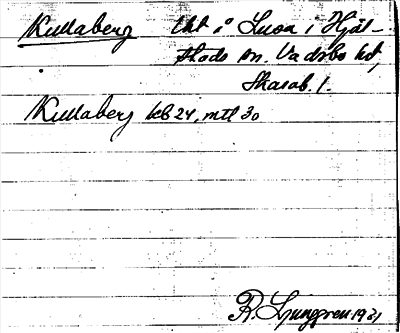 Kullaberg Uht å Lusa i Hjäl-
stads sn. Vadsbo hd,
Skarab. l.
Kullaberg kb 24, mtl 30
R. Ljunggren 1921